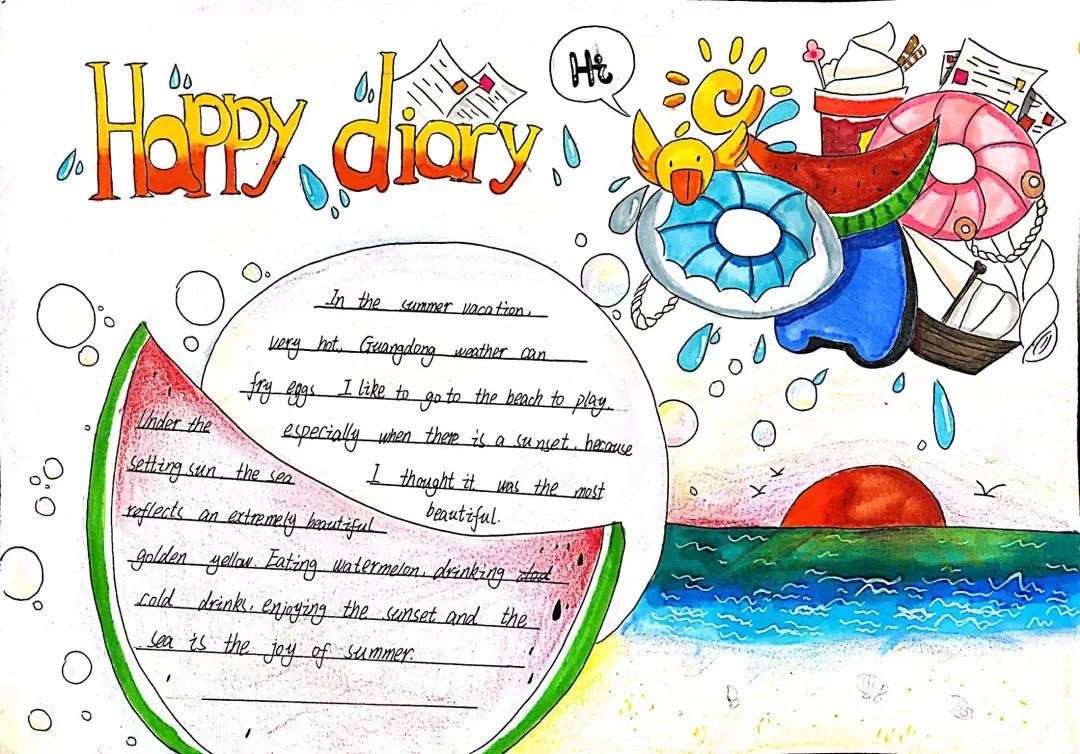 Happy diary
Hi
In the summer vacation,
very hot, Guangdong weather can
fry eggs I like to go to the beach to play.
especially when there is a sunset, because
I thought it was the most
beautiful.
Under the
setting sun, the sea
reflects an extremely beautiful
golden yellow. Eating watermelon, drinking
cold drinks, enjoying the sunset and the
sea is the joy of summer.